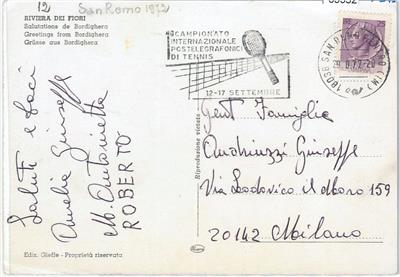 12
San Remo 1972
RIVIERA DEI FIORI
Salutations de Bordighera
Greetings from Bordighera
Grüsse aus Bordighera
CAMPIONATO
INTERNAZIONALE
POSTELEGRAFONICI
DI TENNIS
12-17 SETTEMBRE
18038 SAN
Saluti e baci
Amelia Giuseppe
M. Antonietta
ROBERTO
Riproduzione vietata
Gent. Famiglia
Andriuzzi Giuseppe
Via Lodovico il Moro 159
20142 Milano
Ediz. Gielle - Proprietà riservata